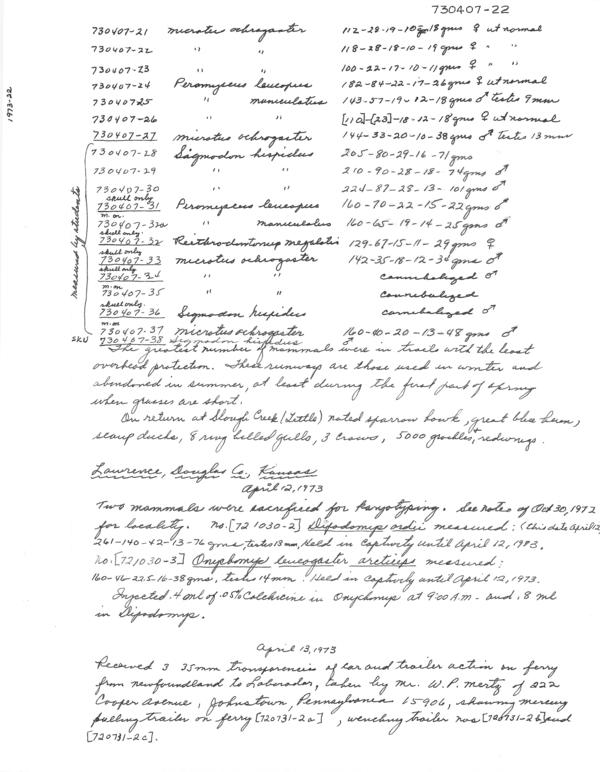 730407-22
1973-22
730407-21 Microtus ochrogaster 112-28-19-10 18 gms ♀ ut normal
730407-22 " " 118-28-18-10-19 gms ♀ " "
730407-23 " " 100-22-17-10-11 gms ♀ "
730407-24 Peromyscus leucopus 182-84-22-17-26 gms ♀ ut normal
73040725 " maniculatus 143-57-19-12-18 gms ♂ testes 9mm
730407-26 " " [110]-[23]-18-12-18 gms ♀ ut normal
730407-27 microtus ochrogaster 144-33-20-10-38 gms ♂ testes 13 mm
measured by students
730407-28 Sigmodon hispidus 205-80-29-16-71 gms
730407-29 " " 210-90-28-18-74 gms ♂
730407-30 " " 224-87-28-13-101 gms ♂
skull only
730407-31 Peromyscus leucopus 160-70-22-15-22 gms ♂
m.m.
730407-32a " maniculatus 160-65-19-14-25 gms ♂
skull only
730407-32 Reithrodontomys megalotis 129-67-15-11-29 gms ♀
skull only
730407-33 microtus ochrogaster 142-35-18-12-34 gms ♂
skull only
730407-34 " " cannibalized ♂
m.m
730407-35 " " cannibalized
skull only
730407-36 Sigmodon hispidus cannibalized ♂
m.m
730407-37 microtus ochrogaster 160-40-20-13-48 gms ♂
SKU 730407-38 Sigmodon hispidus ♂
The greatest number of mammals were in trails with the least
overhead protection. These runways are those used in winter and
abandoned in summer, at least during the first part of spring
when grasses are short.
On return at Slough Creek (Little) noted sparrow hawk, great blue heron,
scaup ducks, 8 ring billed gulls, 3 crows, 5000 grackles + redwings.
Lawrence, Douglas Co., Kansas
April 12, 1973
Two mammals were sacrificed for karyotyping. See notes of Oct 30, 1972
for locality. No. [721030-2] Dipodomys ordii measured: (this date April 12
261-140-42-13-76 gms testes 13 mm, Held in captivity until April 12, 1973.
No. [721030-3] Onychomys leucogaster arcticeps measured:
160-46-22.5-16-38 gms, testes 14 mm. Held in captivity until April 12, 1973.
Injected .4 ml of .05% Colchicine in Onychomys at 9:00 A.M. and .8 ml
in Dipodomys.
April 13, 1973
Received 3 35mm transparencies of car and trailer action on ferry
from newfoundland to Labrador, taken by Mr. W.P. Mertz of 222
Cooper Avenue, Johnstown, Pennsylvania 15906, showing mercury
pulling trailer on ferry [720731-2a], wenching trailer nos [720731-2b] and
[720731-2c].